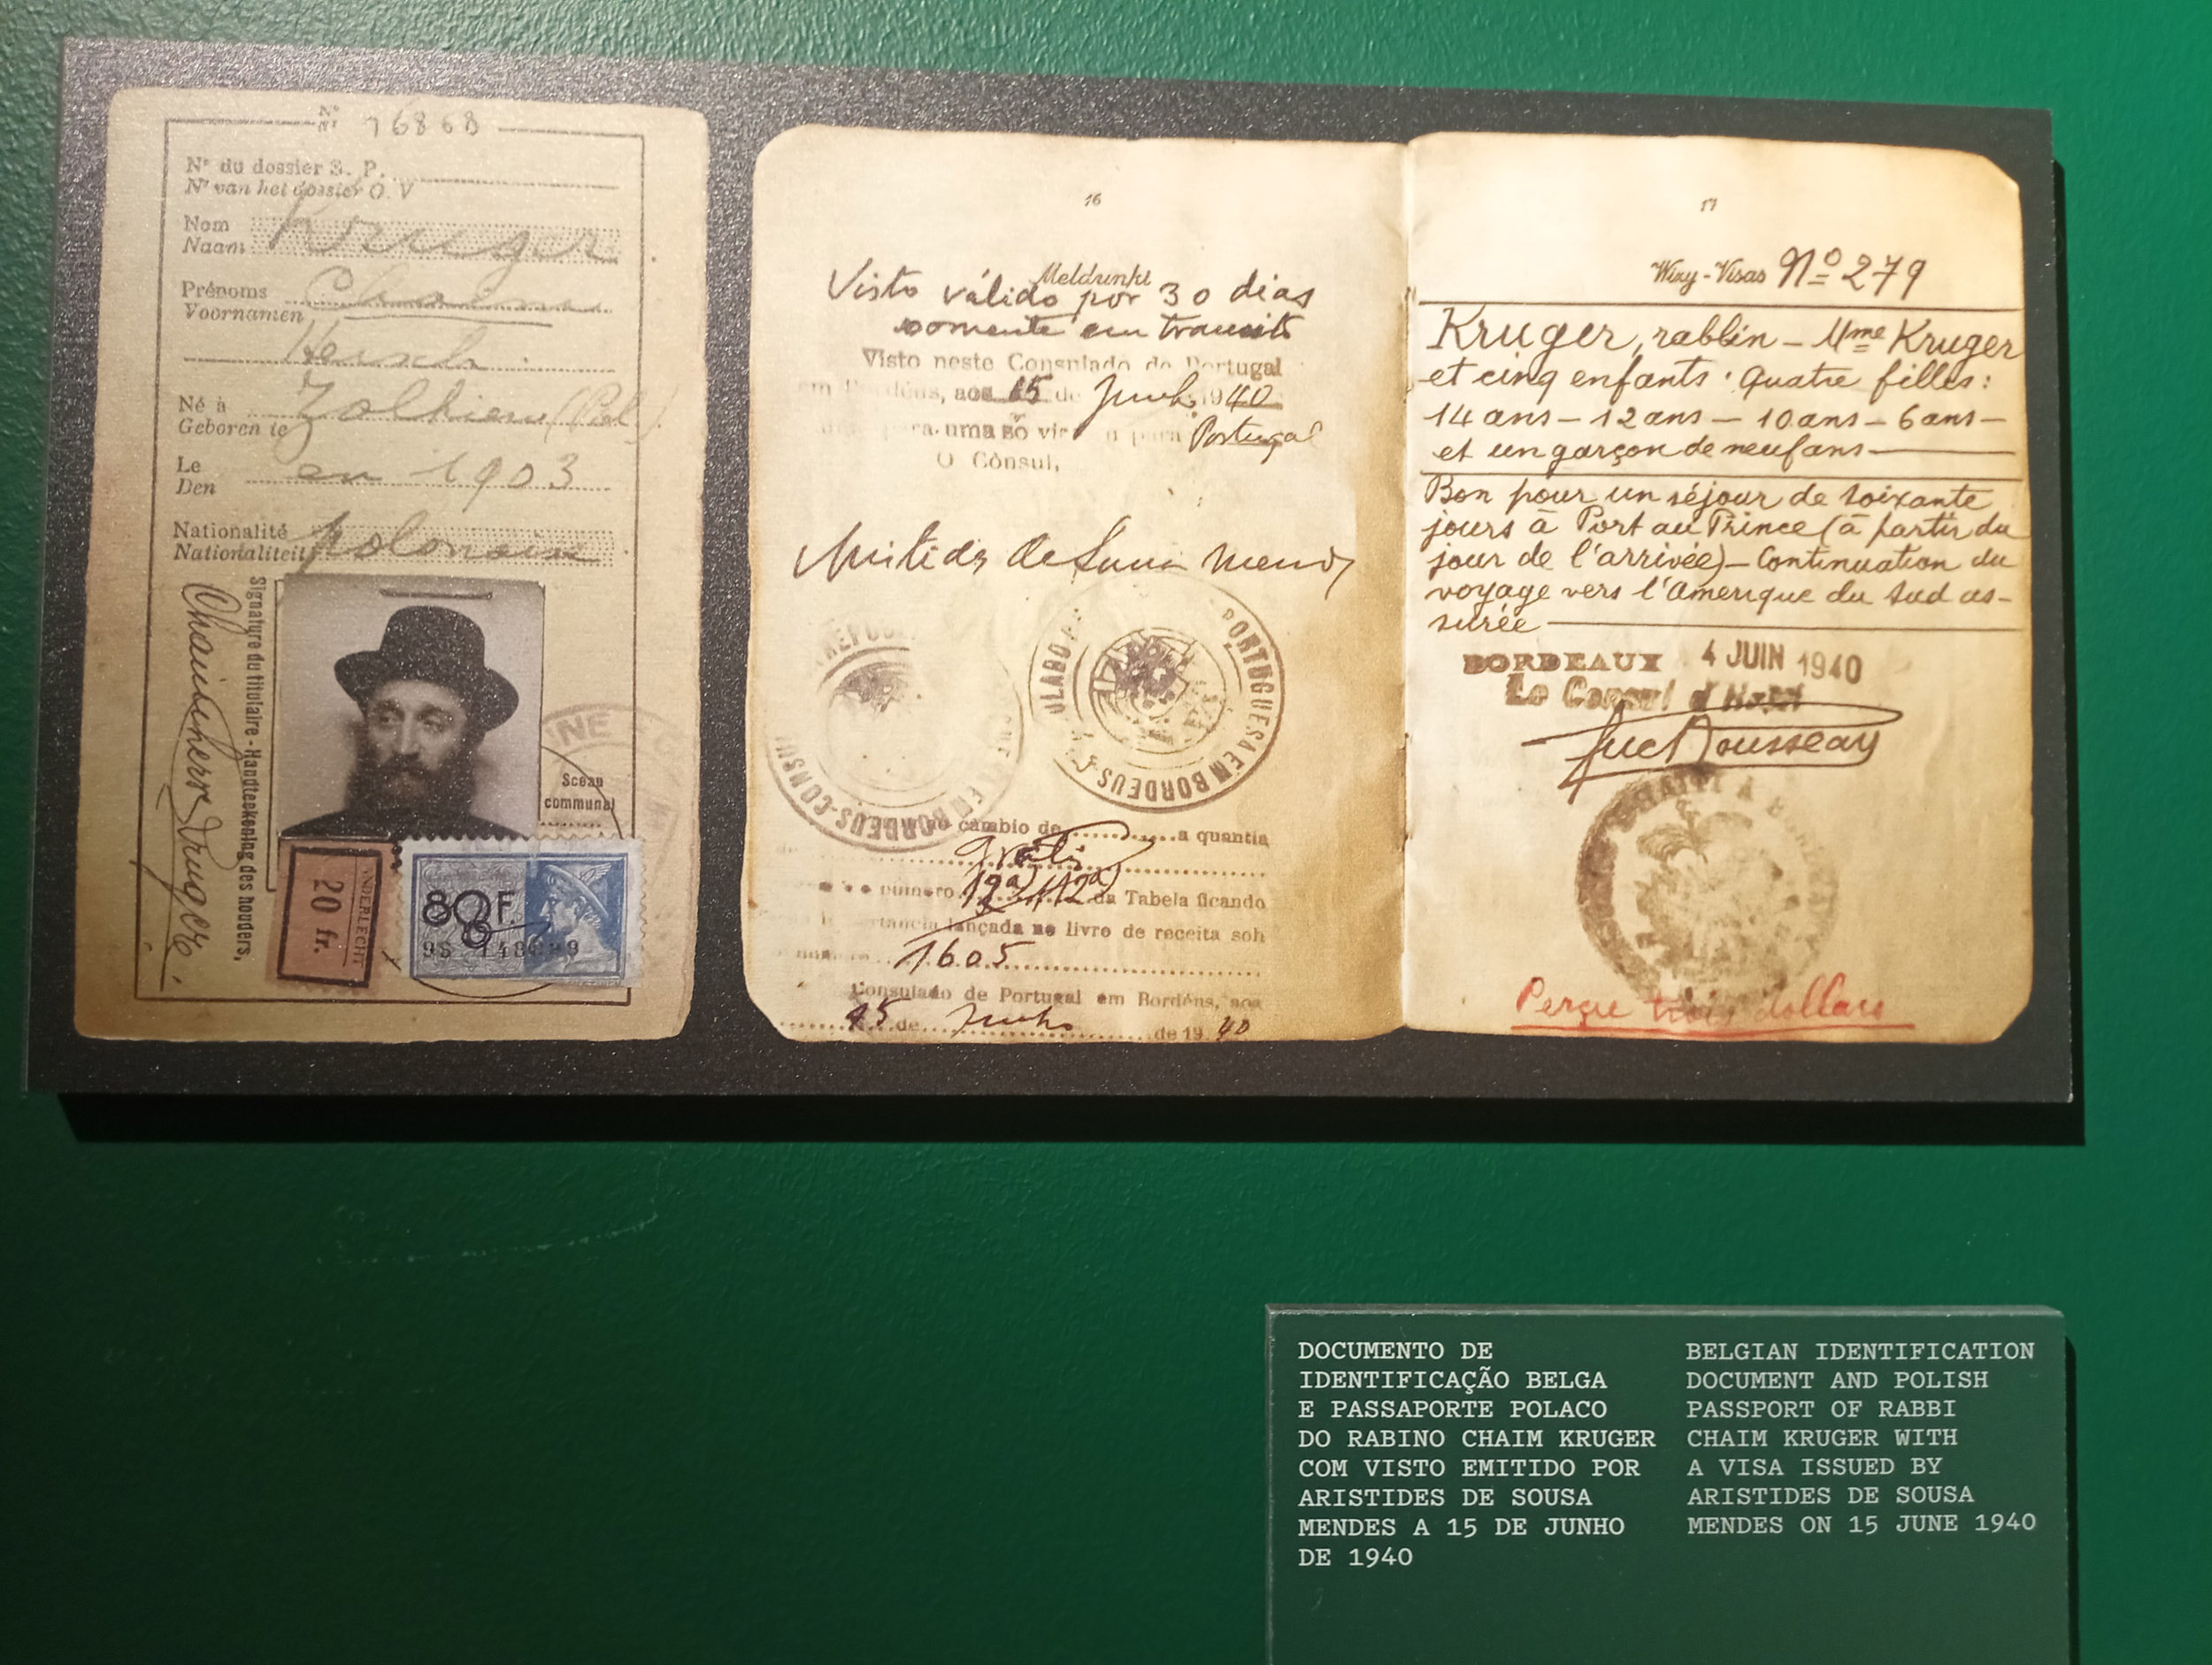 Nº
Nr 76868
Nº du dossier S. P.
Nr van het dossier O. V
Nom
Naam Kruger
Prénoms
Voornamen
Hersch
Né à
Geboren te (Pol.)
Le
Den en 1903
Nationalité
Nationaliteit polonaise
Signature du titulaire - Handteekening des houders,
Kruger
Sceau
communal
ANDERLECHT
20 fr.
80F.
16
Meldunki
Visto válido por 30 dias
somente em transito
Visto neste Consulado de Portugal
em Bordéus, aos 15 de Junho 1940
para uma só para Portugal
O Cônsul,
PORTUGUESA EM BORDEUS
EM BORDEUS-CONSU
ao cambio de a quantia
de gratis
numero da Tabela ficando
lançada no livro de receita sob
1605
Consulado de Portugal em Bordéus, aos
15 de Junho de 1940
17
Wizy-Visas Nº 279
Kruger, rabbin - Mme Kruger
et cinq enfants. Quatre filles:
14 ans - 12 ans - 10 ans - 6 ans -
et un garçon de neuf ans
Bon pour un séjour de soixante
jours à Port au Prince (à partir du
jour de l'arrivée) - Continuation du
voyage vers l'Amerique du Sud as-
surée
BORDEAUX 4 JUIN 1940
Le Consul d'Haiti
Perçu trois dollars
DOCUMENTO DE
IDENTIFICAÇÃO BELGA
E PASSAPORTE POLACO
DO RABINO CHAIM KRUGER
COM VISTO EMITIDO POR
ARISTIDES DE SOUSA
MENDES A 15 DE JUNHO
DE 1940
BELGIAN IDENTIFICATION
DOCUMENT AND POLISH
PASSPORT OF RABBI
CHAIM KRUGER WITH
A VISA ISSUED BY
ARISTIDES DE SOUSA
MENDES ON 15 JUNE 1940